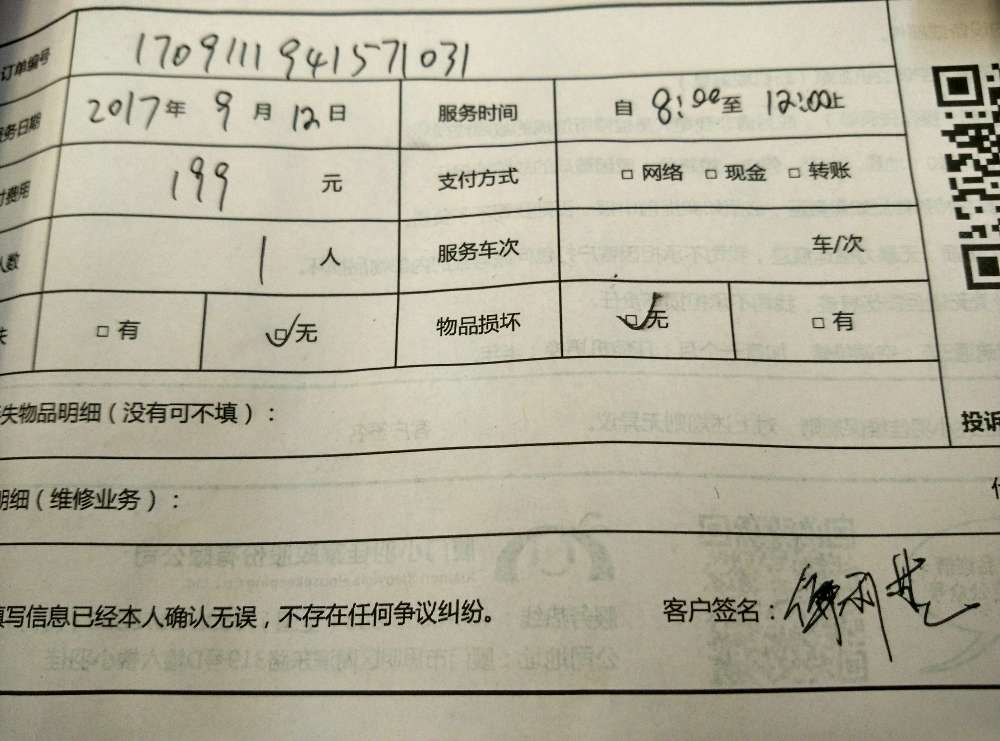 订单编号 17091119941571031
务日期 2017年 9月 12日 服务时间 自 8:00至 12:00止
付费用 199 元 支付方式 □ 网络 □ 现金 □ 转账
人数 1 人 服务车次 车/次
失 □ 有 □ 无 物品损坏 □ 无 □ 有
失物品明细(没有可不填):
投诉
明细(维修业务):
填写信息已经本人确认无误,不存在任何争议纠纷。 客户签名: